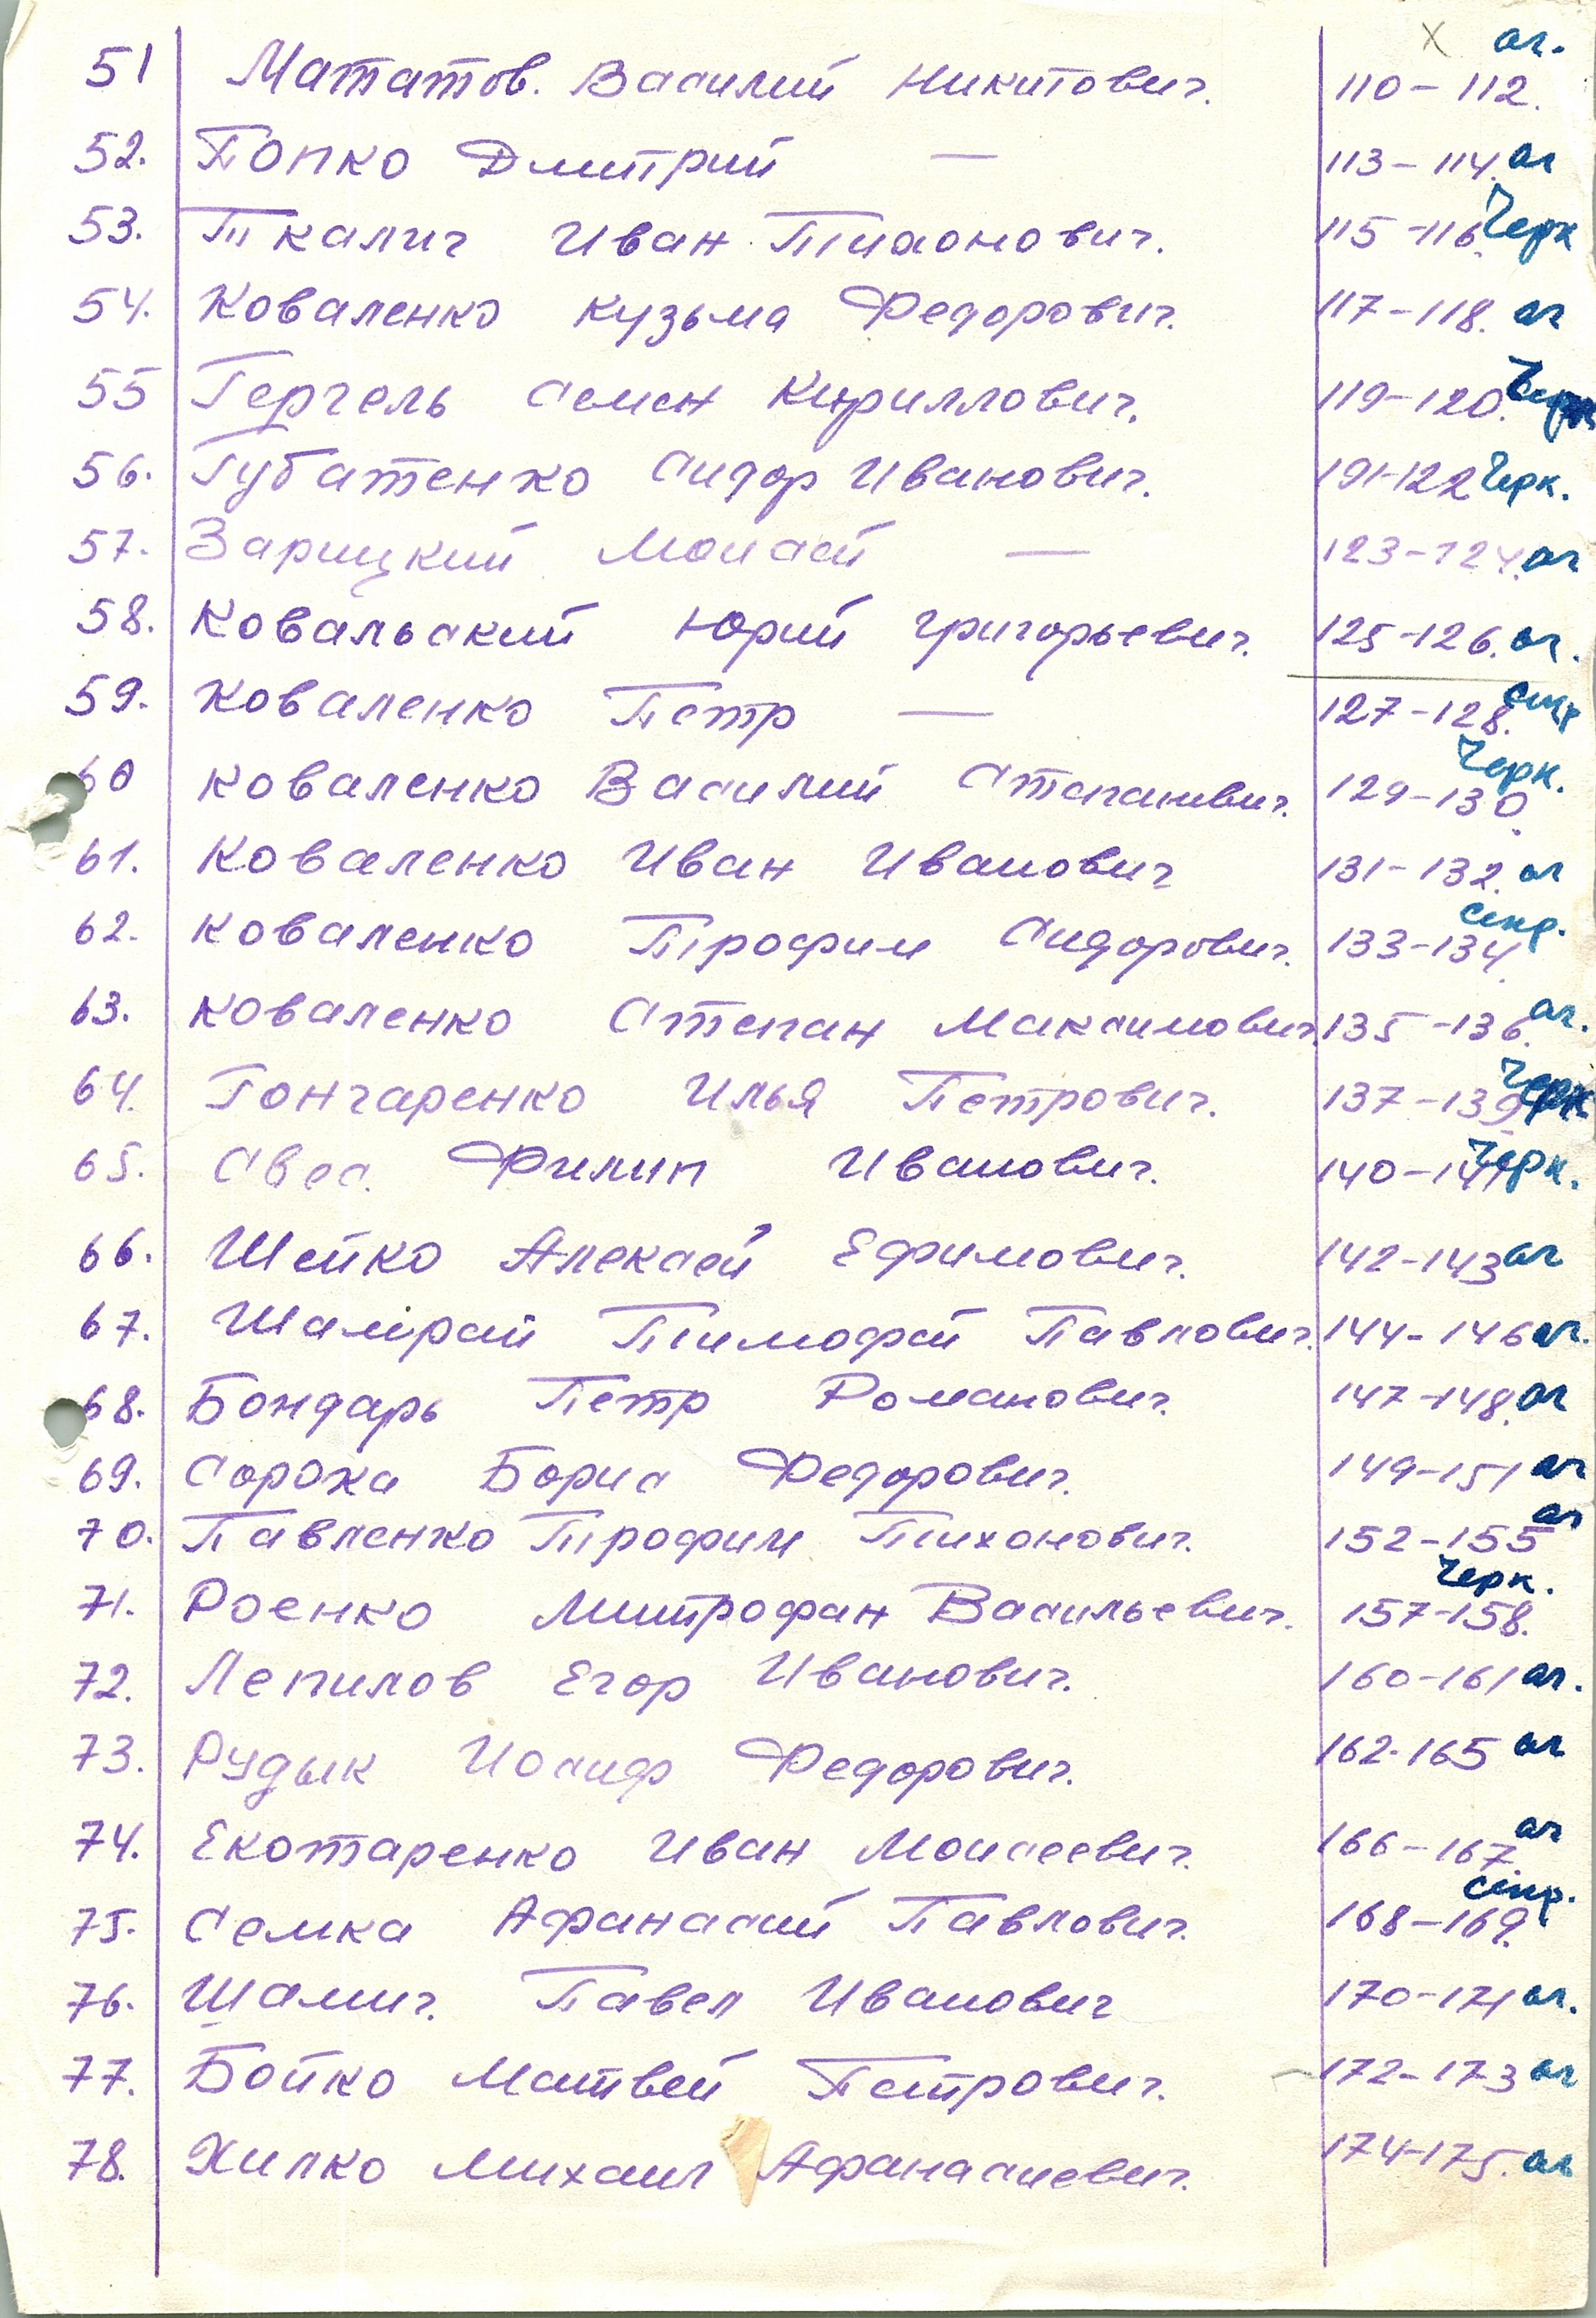 51 Мататов. Василий Никитович. 110-112. ог.
52. Попко Дмитрий — 113-114. ог
53. Ткалич Иван Тихонович. 115-116. Черк
54. Коваленко Кузьма Федорович. 117-118. ог
55 Гергель Семен Кириллович. 119-120. Черк
56. Губатенко Сидор Иванович. 191-122 Черк.
57. Зарицкий Моисей — 123-124. ог
58. Ковальский Юрий Григорьевич. 125-126. ог.
59. Коваленко Петр — 127-128.
60 Коваленко Василий Степанович. 129-130. Черк.
61. Коваленко Иван Иванович 131-132. ог
62. Коваленко Трофим Сидорович. 133-134.
63. Коваленко Степан Максимович. 135-136. ог.
64. Гончаренко Илья Петрович. 137-139. Черк
65. Свес. Филип Иванович. 140-141 Черк.
66. Шейко Алексей Ефимович. 142-143 ог
67. Шамрай Тимофей Павлович. 144-146 ог.
68. Бондарь Петр Романович. 147-148. ог
69. Сорока Борис Федорович. 149-151 ог
70. Павленко Трофим Тихонович. 152-155 ог
71. Роенко Митрофан Васильевич. 157-158. Черк.
72. Лепилов Егор Иванович. 160-161 ог.
73. Рудык Иосиф Федорович. 162-165 ог
74. Екотаренко Иван Моисеевич. 166-167. ог
75. Семка Афанасий Павлович. 168-169.
76. Шамич. Павел Иванович 170-171 ог.
77. Бойко Матвей Петрович. 172-173 ог
78. Хилко Михаил Афанасиевич. 174-175. ог